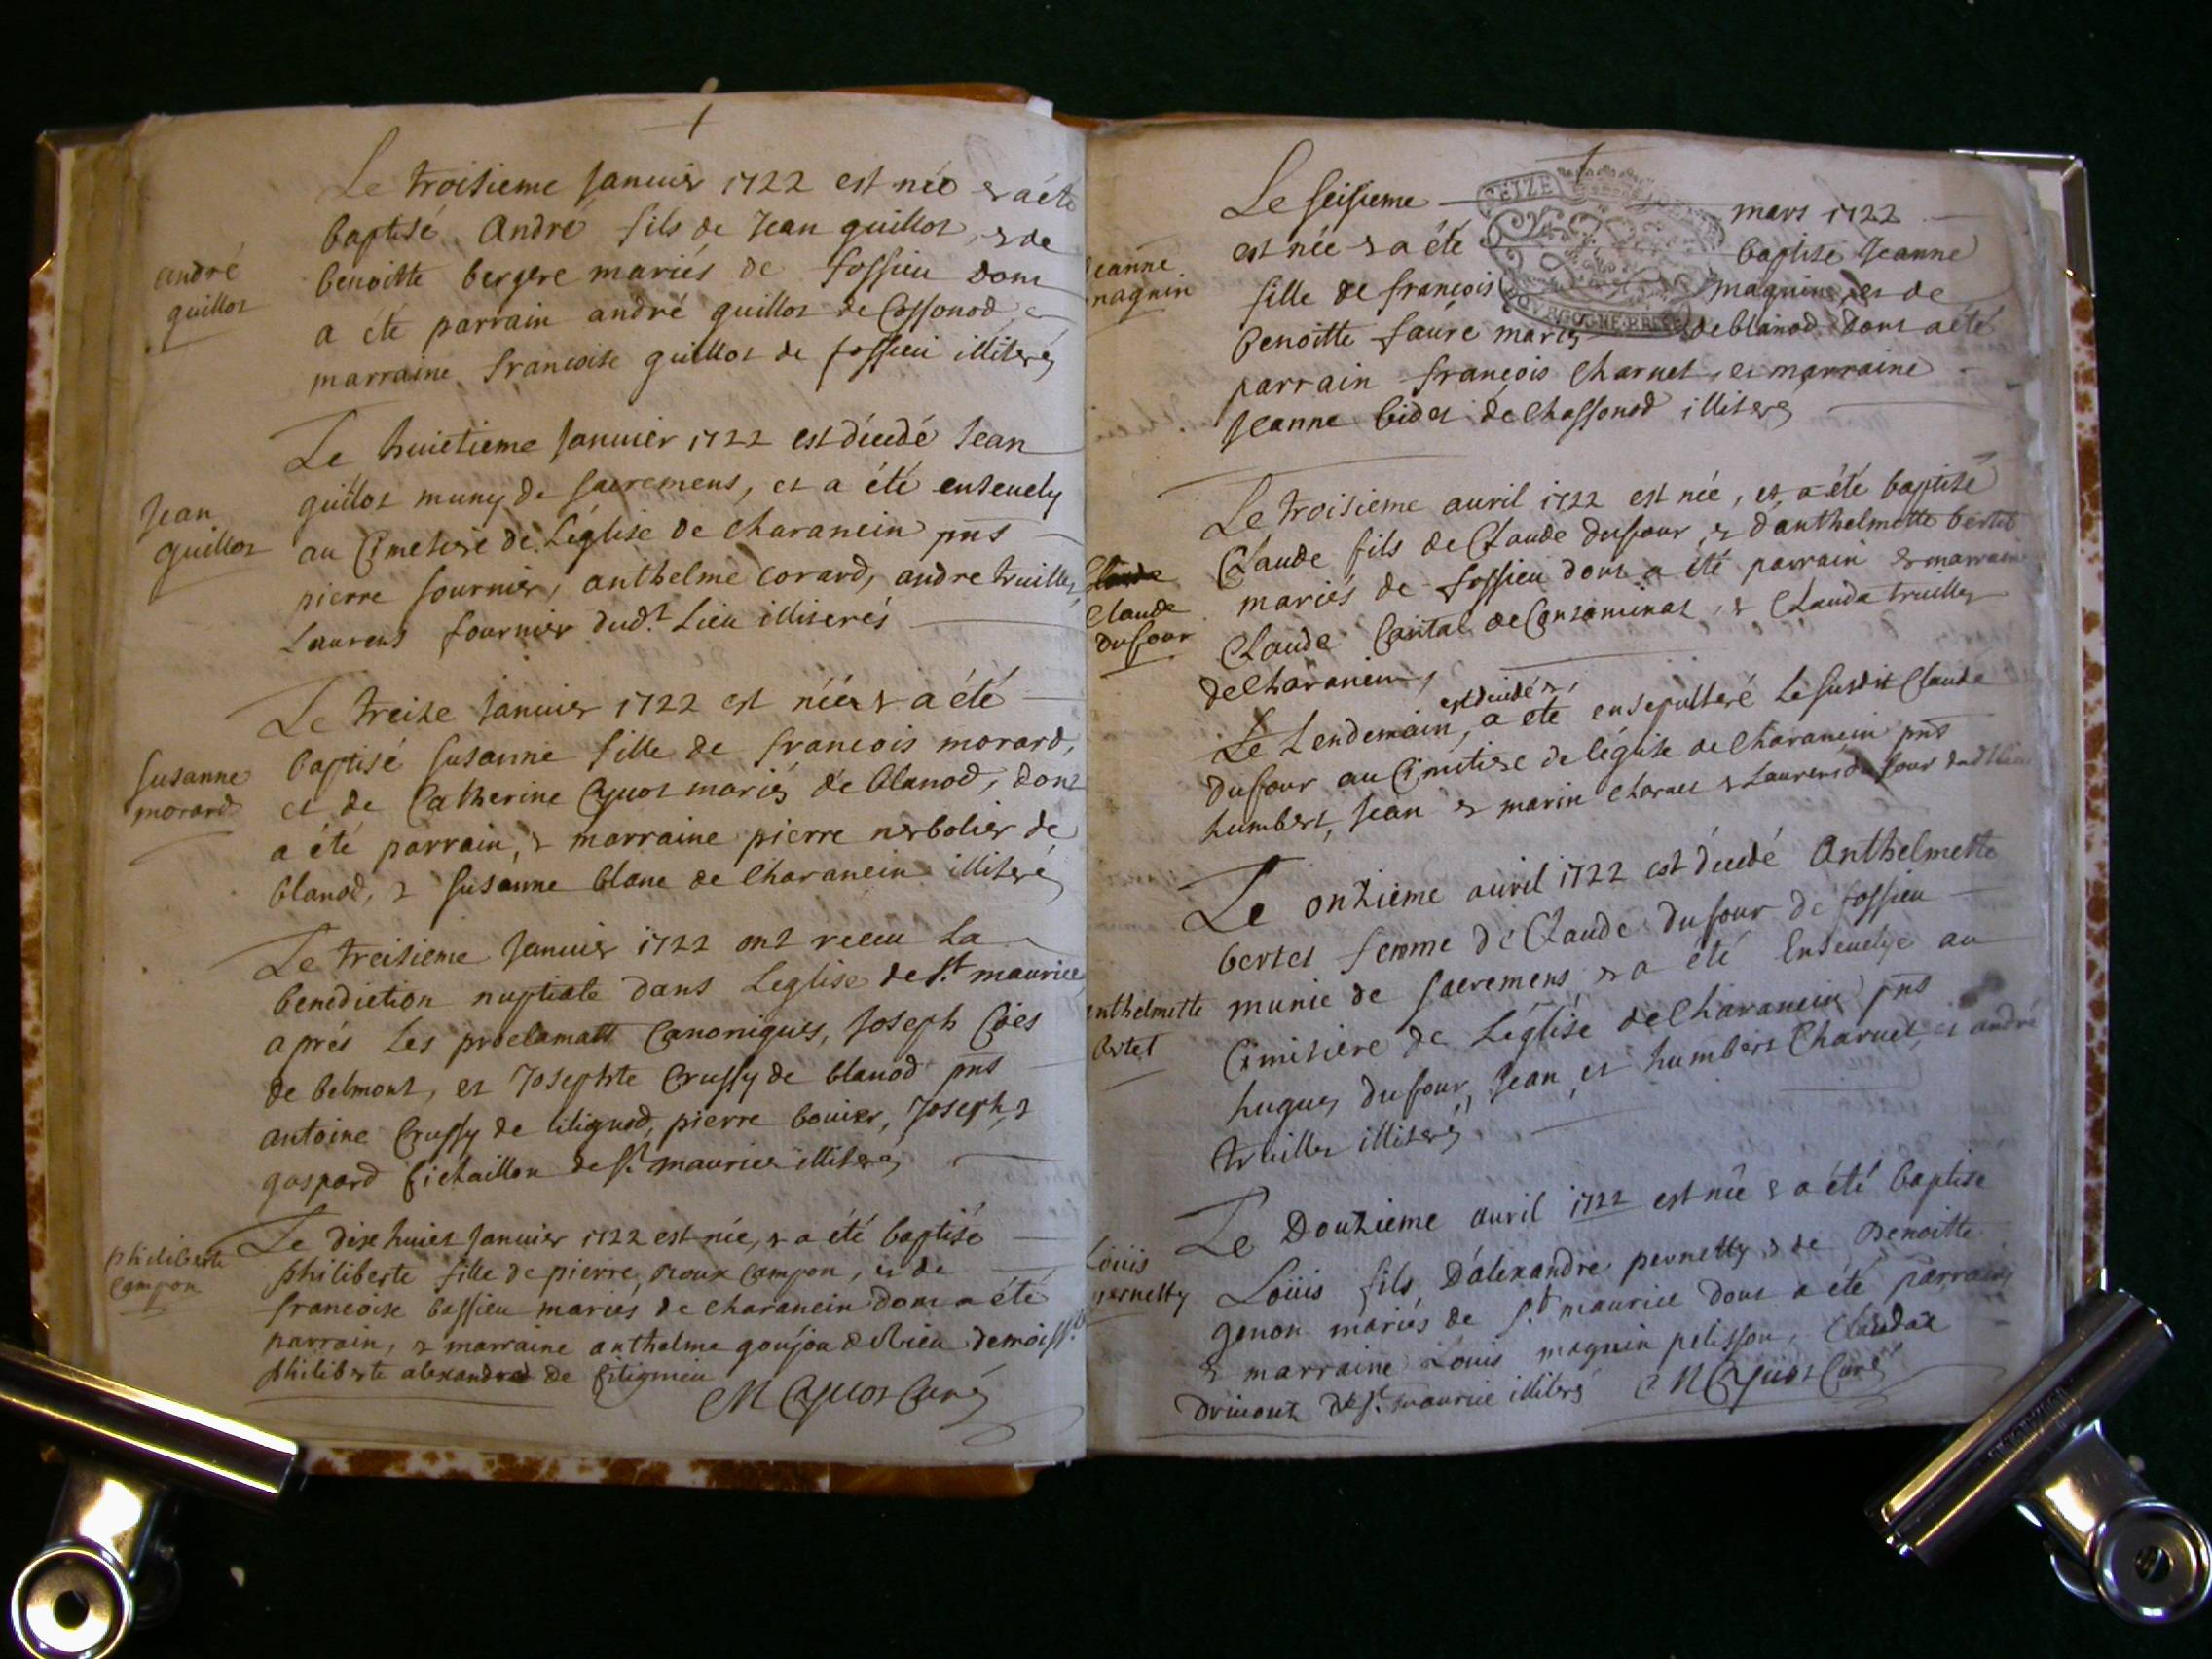 Le troisieme Januier 1722 est née & a été
baptisé André fils de Jean guillot & de
benoitte bergere mariés de fossieu dont
a été parrain andré guillot de Cossonod, et
marraine francoise guillot de fossieu illiterés
andré
guillot
Le huietieme Januier 1722 est décedé Jean
guillot muny de sacremens, et a été enseuely
au Cimetiere de L'église de charancin pnts
pierre fournier, anthelme corard, andre truillet,
Laurens fournier dud.t Lieu illiterés
Jean
guillot
Le treize Januier 1722 est néé & a été
baptisé susanne fille de francois morard,
et de Catherine Cyuot mariés de blanod, dont
a été parrain, & marraine pierre nerbolier de
blanod, & susanne blanc de Charancin illiteré
susanne
morard
Le treisieme Januier 1722 ont receu La
benediction nuptiale dans Leglise de s.t maurice
aprés Les proclamatt Canoniques, Joseph
de belmont, et Josephte Crussy de blanod pnts
antoine Crussy de pierre bouier, Joseph, &
gaspard de s.t maurice illiterés
Le dixhuiet Januier 1722 est née, & a été baptisé
philiberte fille de pierre Rioux Campon, et de
francoise bassieu mariés de charancin dont a été
parrain, & marraine anthelme goujon demoiss.lle
philiberte alexandre de fitignieu
philiberte
Campon
Curé
Le seisieme mars 1722
est née & a été baptisé Jeanne
fille de francois magnin, et de
benoitte faure mariés de blanod dont a été
parrain françois Charuet, et marraine
Jeanne bidet de Chassonod illiterés
SEIZE
BOURGOGNE BRESSE
Jeanne
magnin
Le troisieme auril 1722 est née, et a été baptisé
Claude fils de Claude dufour, & d'anthelmette bertet
mariés de fossieu dont a été parrain & marraine
Claude Cantal de & Clauda truillet
de Charancin,
Claude
Claude
dufour
Le Lendemain, est décidé &, a été ensepulteré Le susdit Claude
dufour au Cimetiere de l'église de Charancin pnts
humbert, Jean & marin charuet & Laurens dufour dud lieu
Le onzieme auiril 1722 est décedé Anthelmette
bertet femme de Claude dufour de fossieu
munie de sacremens, & a été Enseuelye au
Cimitiere de L'église de Charancin pnts
hugues dufour, Jean, et humbert Charuet, et andré
truillet illiterés
anthelmette
bertet
Le Douzieme auril 1722 est née & a été baptisé
Loüis fils, D'alexandre pernetty & de Benoitte
genon mariés de s.t maurice dont a été parrain
& marraine Louis magnin pelisson, Claudae
de s.t maurice illiteré
Louis
pernetty
Curé